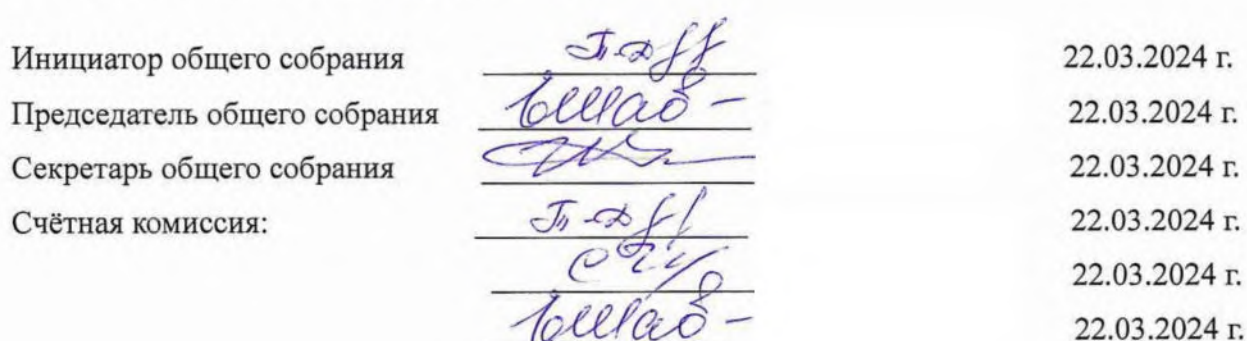 Инициатор общего собрания 22.03.2024 г.
Председатель общего собрания 22.03.2024 г.
Секретарь общего собрания 22.03.2024 г.
Счётная комиссия: 22.03.2024 г.
22.03.2024 г.
22.03.2024 г.